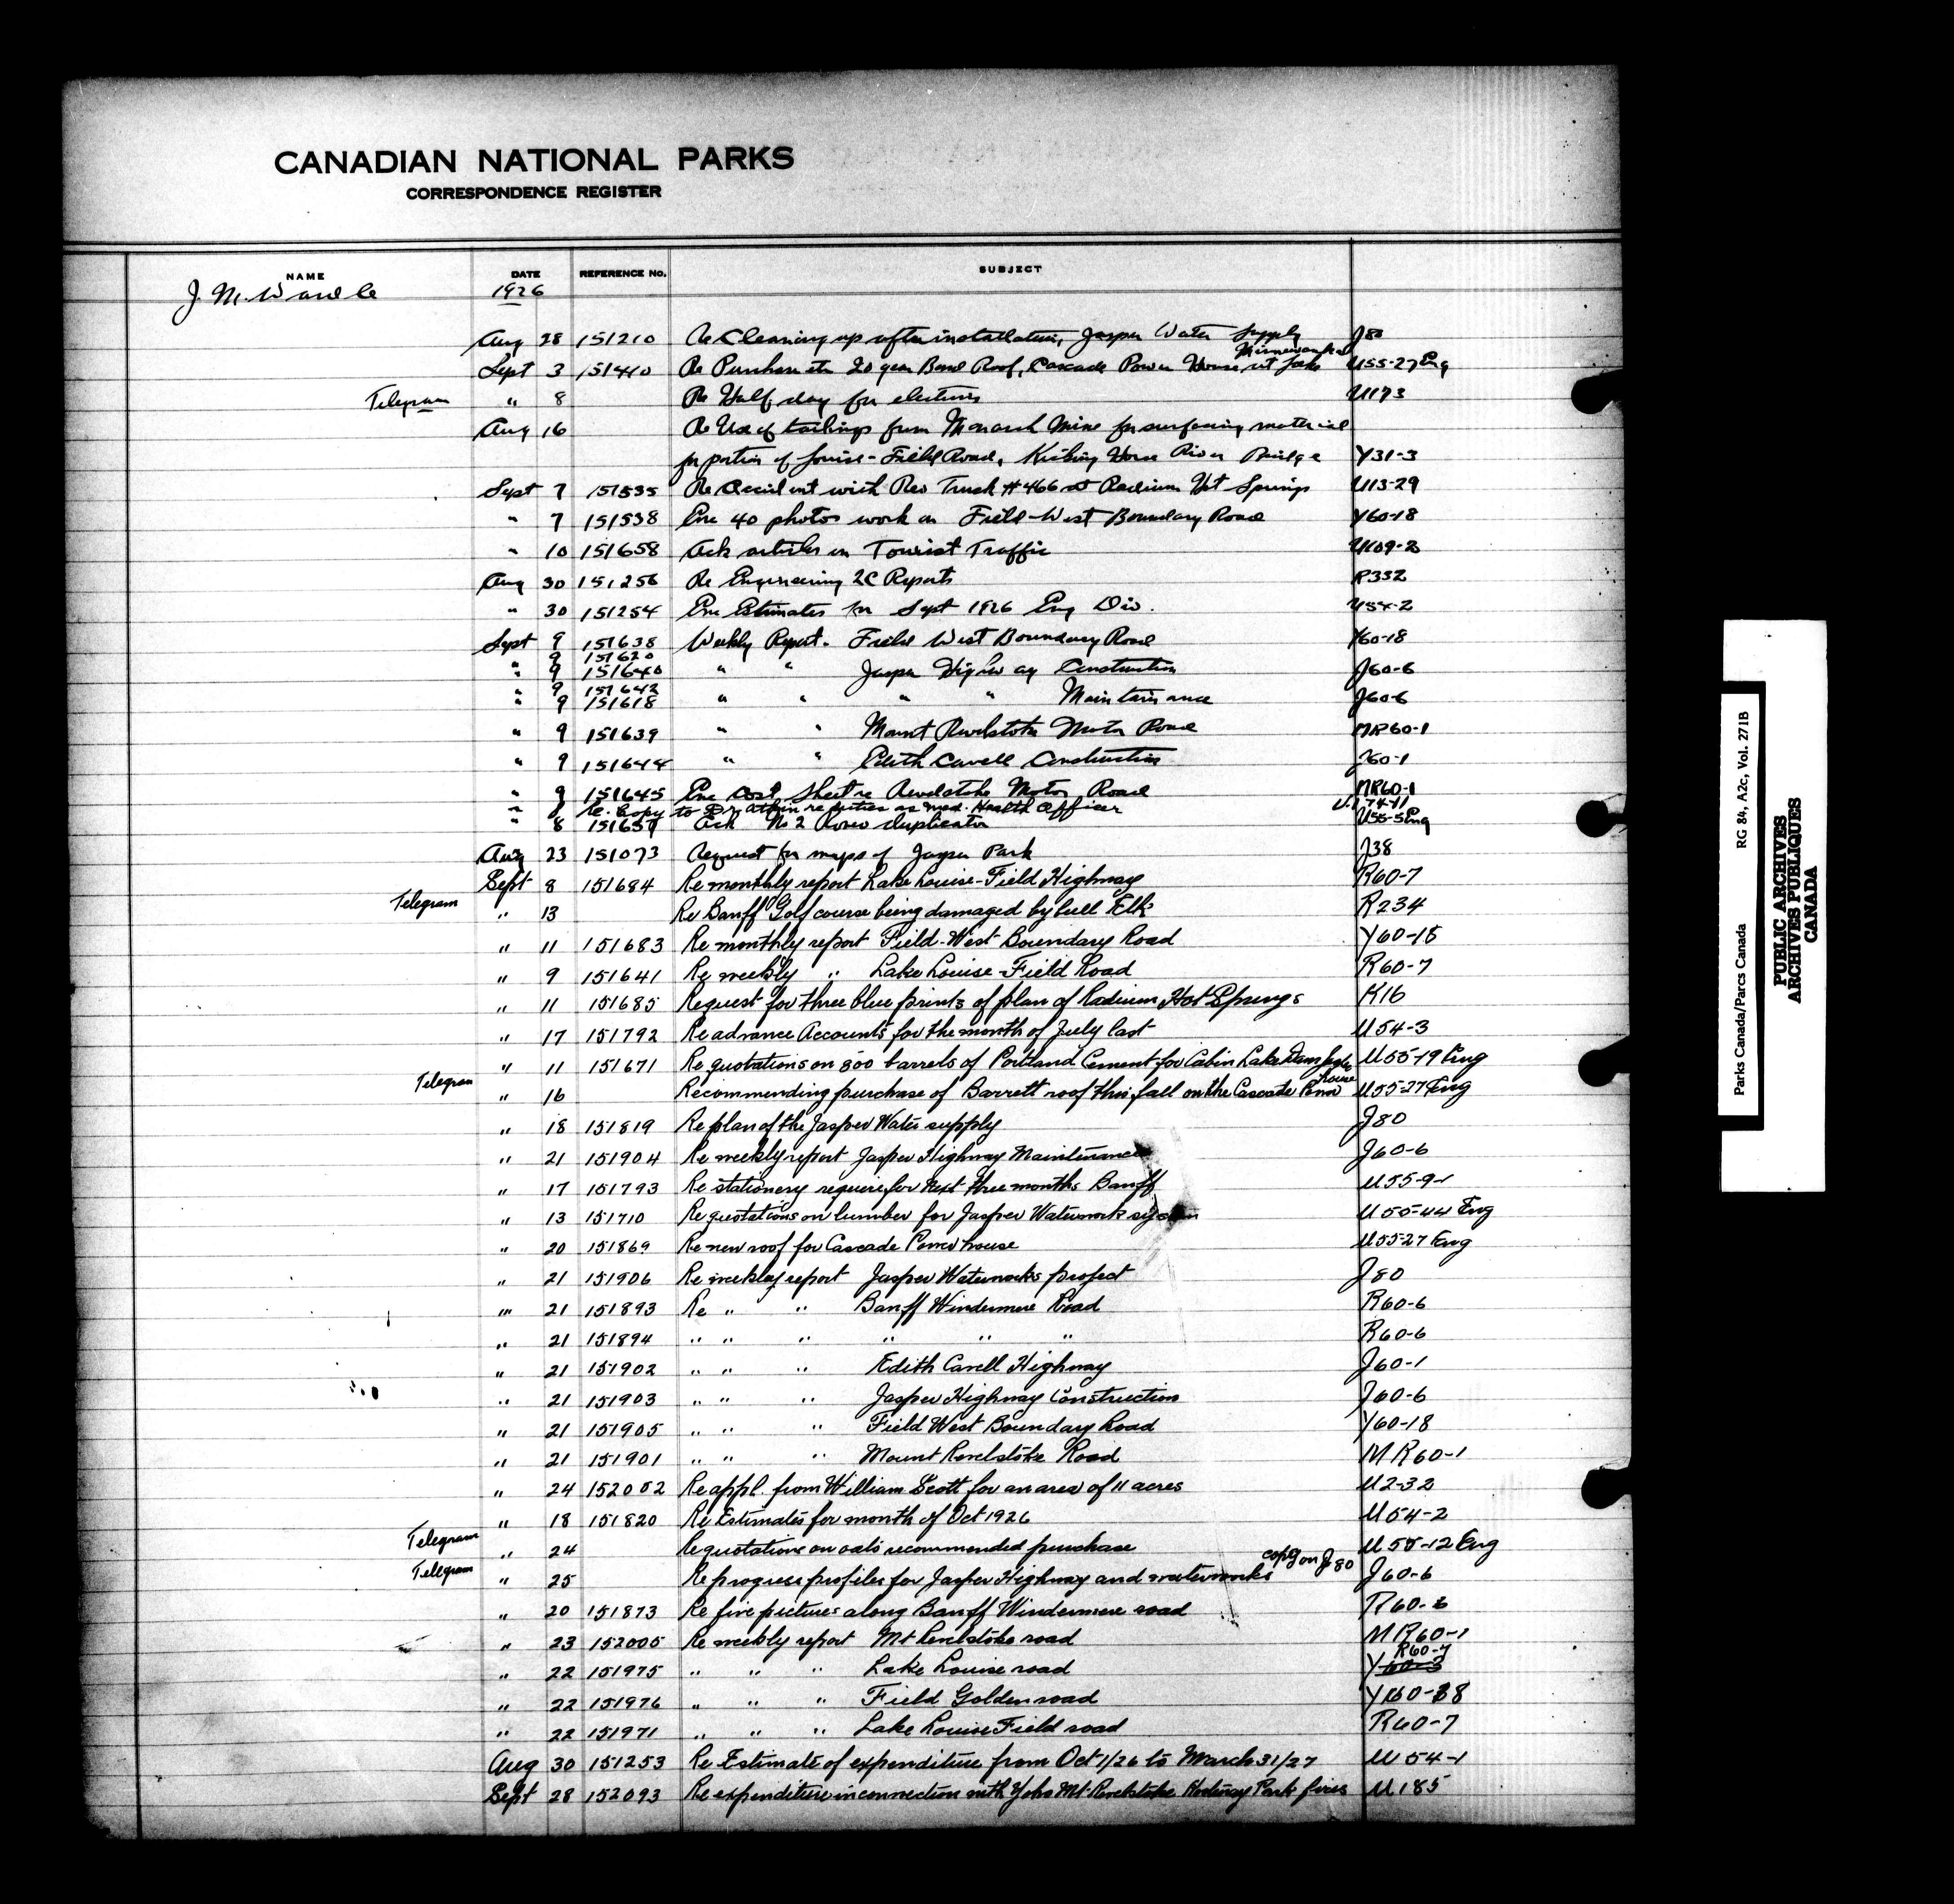 CANADIAN NATIONAL PARKS
CORRESPONDENCE REGISTER
NAME DATE REFERENCE No. SUBJECT
J. M. Wardle 1926
Aug 28 151210 Re Cleaning up after installation, Jasper Water Supply J80
Sept 3 151410 Re Purchase etc 20 year Bond Roof, Cascade Power House at Lake Minnewanka U55-27 Eng
Telegram " 8 Re Half day for elections U173
Aug 16 Re Use of tailings from Monarch Mine for surfacing material
for portion of Louise-Field Road, Kicking Horse River Bridge Y31-3
Sept 7 151535 Re Accident with Reo Truck #466 at Radium Hot Springs U113-29
" 7 151538 Enc 40 photos work on Field-West Boundary Road Y60-18
" 10 151658 Ack articles on Tourist Traffic U109-2
Aug 30 151256 Re Engineering 2C Reports R332
" 30 151254 Enc Estimates for Sept 1926 Eng Div. U54-2
Sept 9 151638 Weekly Report. Field West Boundary Road Y60-18
" 9 151620
" 9 151640 " " Jasper Highway Construction J60-6
" 9 151642
" 9 151618 " " " " Maintainance J60-6
" 9 151639 " " Mount Revelstoke Motor Road MR60-1
" 9 151644 " " Edith Cavell Construction J60-1
" 9 151645 Enc Cost Sheet re Revelstoke Motor Road MR60-1
" 8 Re. Copy to Dr. Atkin re duties as Med. Health Officer U.174-11
" 8 151657 Ack No 2 Roneo duplicator U55-5 Eng
Aug 23 151073 Request for maps of Jasper Park J38
Sept 8 151684 Re monthly report Lake Louise-Field Highway R60-7
Telegram " 13 Re Banff Golf course being damaged by bull Elk R234
" 11 151683 Re monthly report Field-West Boundary Road Y60-18
" 9 151641 Re weekly " Lake Louise-Field Road R60-7
" 11 151685 Request for three blue prints of plan of Radium Hot Springs K16
" 17 151792 Re advance Accounts for the month of July last U54-3
" 11 151671 Re quotations on 800 barrels of Portland Cement for Cabin Lake Dam Jasper U55-19 Eng
Telegram " 16 Recommending purchase of Barrett roof this fall on the Cascade Power house U55-27 Eng
" 18 151819 Re plan of the Jasper Water supply J80
" 21 151904 Re weekly report Jasper Highway Maintenance J60-6
" 17 151793 Re stationery require for next three months Banff U55-9-1
" 13 151710 Re quotations on lumber for Jasper Waterwork system U55-44 Eng
" 20 151869 Re new roof for Cascade Power house U55-27 Eng
" 21 151906 Re weekley report Jasper Waterworks project J80
" 21 151893 Re " " Banff Windermere Road R60-6
" 21 151894 " " " " " " R60-6
" 21 151902 " " " Edith Cavell Highway J60-1
" 21 151903 " " " Jasper Highway Construction J60-6
" 21 151905 " " " Field West Boundary Road Y60-18
" 21 151901 " " " Mount Revelstoke Road MR60-1
" 24 152052 Re appl. from William Scott for an area of 11 acres U2-32
" 18 151820 Re Estimates for month of Oct 1926 U54-2
Telegram " 24 Re quotations on oats recommended purchase U55-12 Eng
Telegram " 25 Re progress profiles for Jasper Highway and waterworks copy on J80 J60-6
" 20 151873 Re fire pictures along Banff Windermere road R60-6
" 23 152005 Re weekly report Mt Revelstoke road MR60-1
" 22 151975 " " " Lake Louise road Y60-3 R60-7
" 22 151976 " " " Field Golden road Y60-18
" 22 151971 " " " Lake Louise Field road R60-7
Aug 30 151253 Re Estimate of expenditure from Oct 1/26 to March 31/27 U54-1
Sept 28 152093 Re expenditure in connection with Yoho Mt-Revelstoke Kootenay Park fires U185
PUBLIC ARCHIVES
ARCHIVES PUBLIQUES
CANADA
Parks Canada/Parcs Canada RG 84, A2c, Vol. 271B